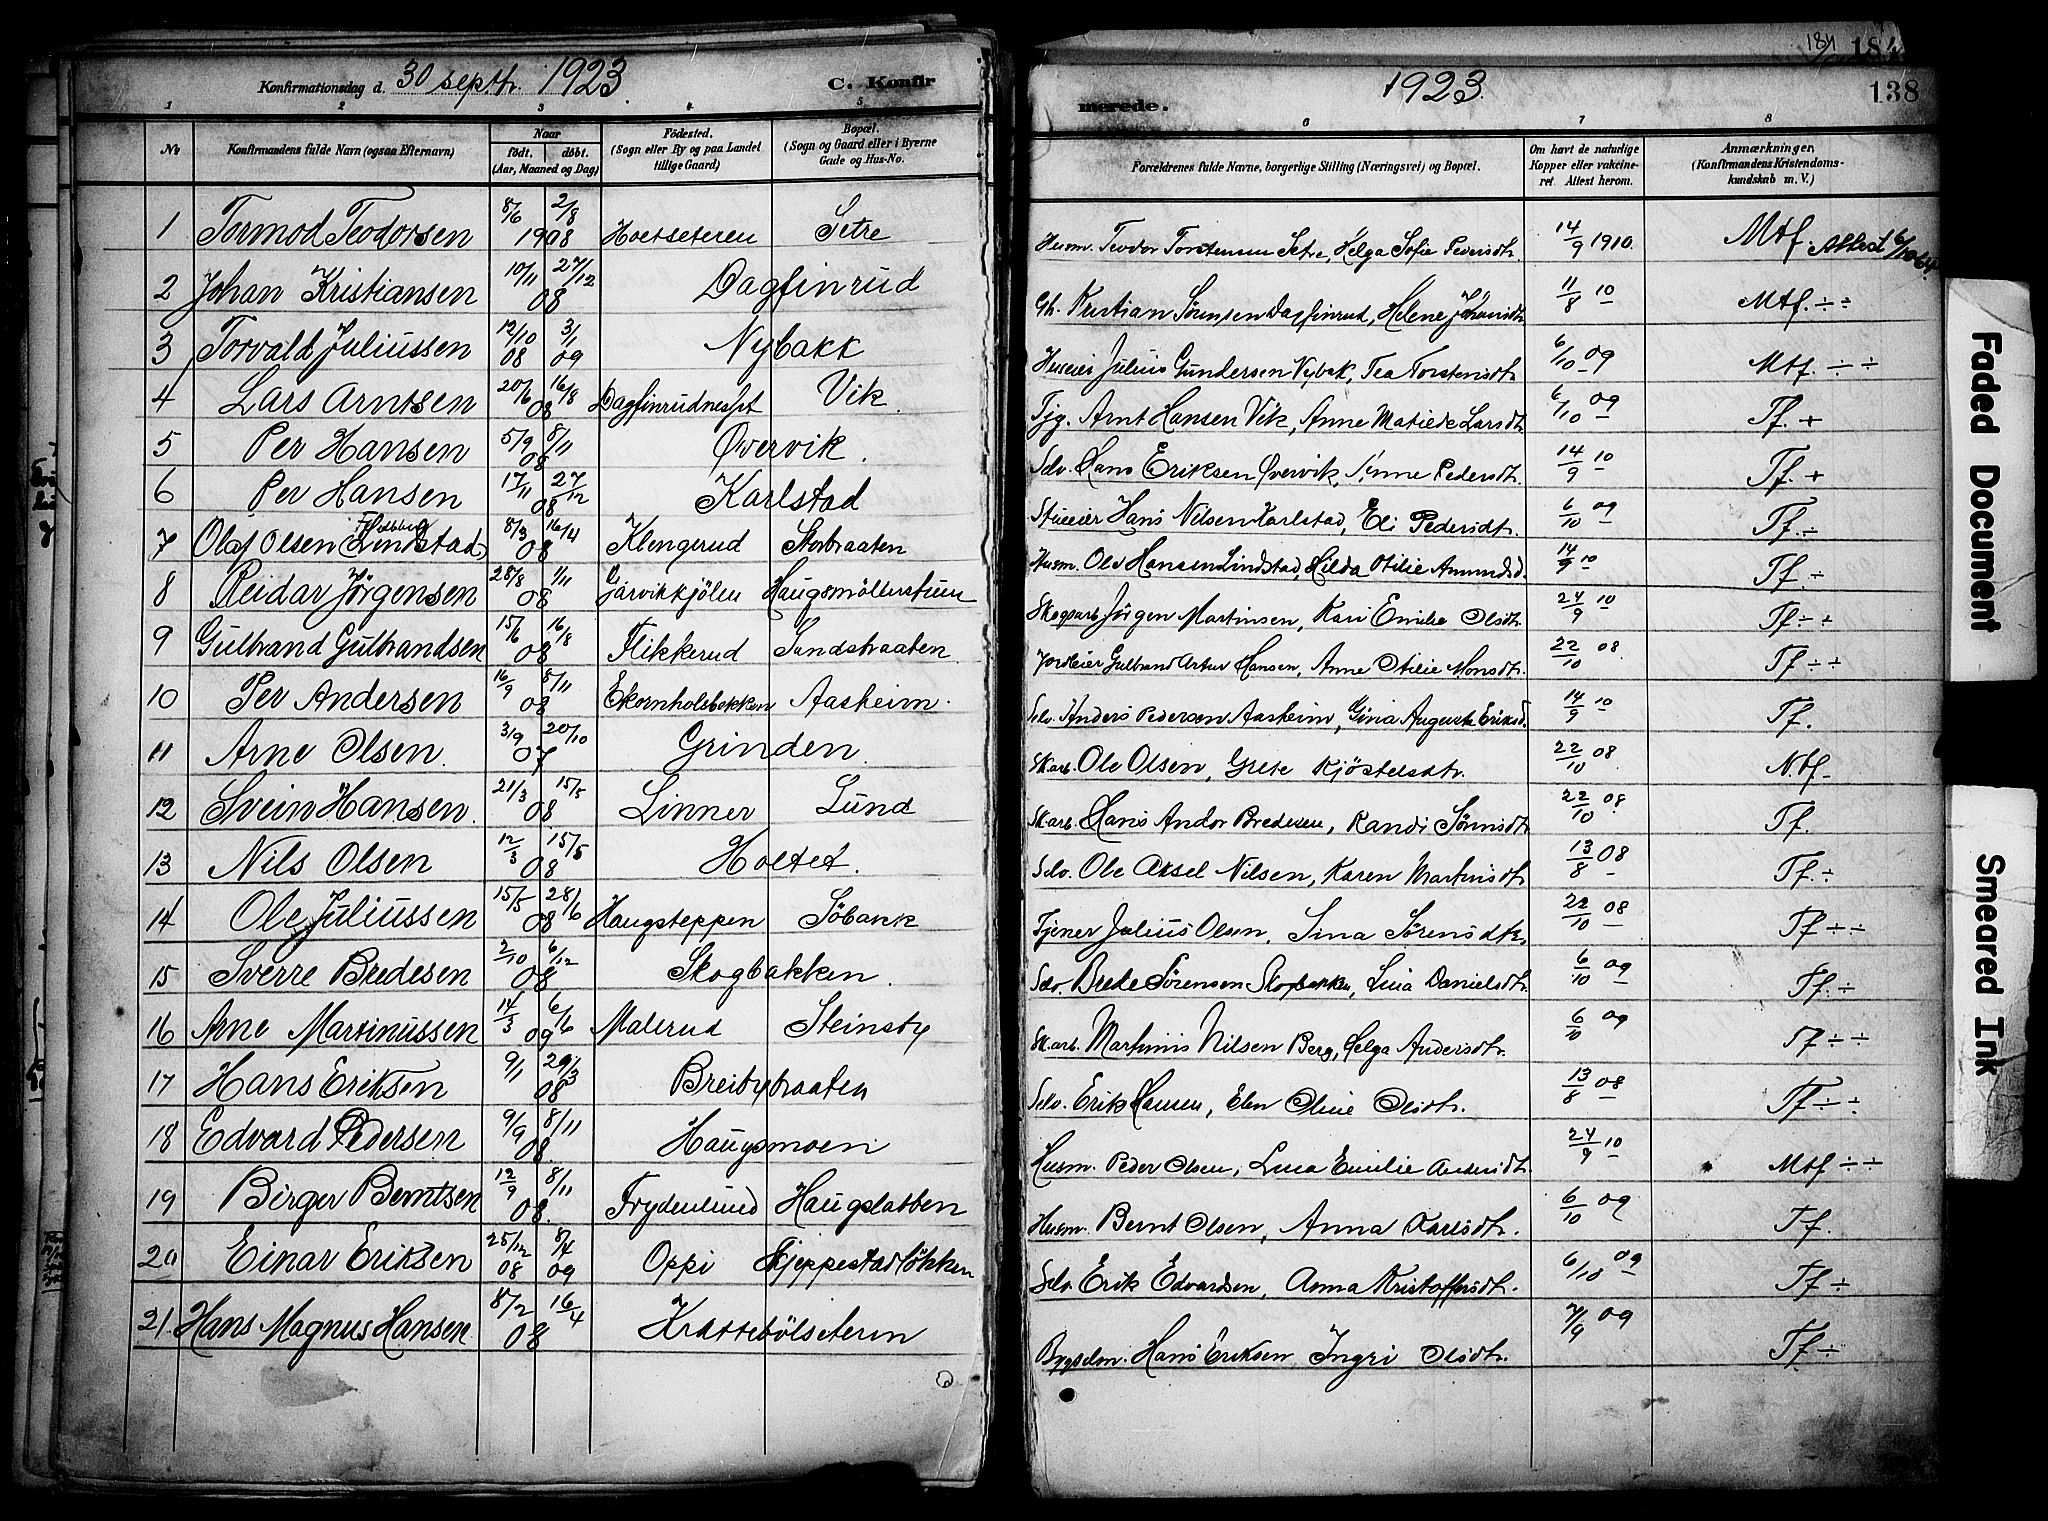 Konfirmationsdag d. 30 septr. 1923 C. Konfir
merede. 1923. 184 184 138
1 2 3 4 5 6 7 8
No Konfirmandens fulde Navn (ogsaa Efternavn) Naar födt. döbt. (Aar, Maaned og Dag) Födested. (Sogn eller By og paa Landet tillige Gaard) Bopæl. (Sogn og Gaard eller i Byerne Gade og Hus-No.) Forældrenes fulde Navne, borgerlige Stilling (Næringsvei) og Bopæl. Om havt de naturlige Kopper eller vakcineret. Attest herom. Anmærkninger. (Konfirmandens Kristendomskundskab m. V.)
1 Tormod Teodorsen 8/6 2/8 1908 Hoelseteren Setre Husm. Teodor Torstensen Setre, Helga Sofie Pedersdtr. 14/9 1910. Mtf. Attest
2 Johan Kristiansen 10/11 27/12 08 Dagfinrud Gb. Kristian Sørensen Dagfinrud, Helene Johansdtr 11/8 10 Mtf. ÷ ÷
3 Torvald Juliussen 12/10 08 3/1 09 Nybakk Huseier Julius Gundersen Nybak, Tea Torstensdtr 6/10 09 Mtf. ÷ ÷
4 Lars Arntsen 20/6 16/8 08 Vik. Tjg. Arnt Hansen Vik, Anne Matilde Larsdtr 6/10 09 Tf. +
5 Per Hansen 5/9 8/11 08 Øvervik. Selv. Hans Eriksen Øvervik, Anne Pedersdtr. 14/9 10 Tf. +
6 Per Hansen 17/11 27/12 08 Karlstad Stueeier Hans Nilsen Karlstad, Eli Pedersdtr. 6/10 09 Tf. ÷
7 Olaf Olsen Lindstad 8/3 16/4 08 Klengerud Storbraaten Husm. Ole Hansen Lindstad, Hilda Otilie Amundsd. 14/9 10 Tf ÷
8 Reidar Jørgensen 28/8 1/11 08 Gjarvikkjölen Haugsmöllerstuen Skogsarb Jörgen Martinsen, Kari Emilie Olsdtr. 24/9 10 Tf ÷ ÷
9 Gulbrand Gulbrandsen 15/6 16/8 08 Flikkerud Sandsbraaten. Jordeier Gulbrand Artur Hansen, Anne Otilie Monsdtr. 22/10 08. Tf ÷ ÷
10 Per Andersen 16/9 8/11 08 Ekornholsbakken Aasheim. Selv. Anders Pedersen Aasheim, Gina Augusta Eriksd. 14/9 10 Tf.
11 Arne Olsen. 3/9 20/10 07 Grinden. Sk.arb. Ole Olsen, Grete Kjöstelsdtr. 22/10 08. Ntf.
12 Svein Hansen. 21/3 15/5 08 Linner Lund Sk.arb. Hans Andor Bredesen, Randi Sörensdtr 22/10 08. Tf.
13 Nils Olsen 12/3 15/5 08 Holtet. Selv. Ole Aksel Nilsen, Karen Martinsdtr 13/8 08 Tf. ÷
14 Ole Juliussen 15/5 28/6 08 Haugsteppen Söbakk Tjener Julius Olsen, Sina Sörensdtr. 22/10 08 Tf ÷ ÷
15 Sverre Bredesen 2/10 6/12 08 Skogbakken. Selv. Brede Sörensen Skogbakken, Lina Danielsdtr. 6/10 09 Tf. ÷
16 Arne Martinussen 14/3 6/6 09 Malerud Steinsby Sk.arb. Martinus Nilsen Berg, Helga Andersdtr. 6/10 09 Tf ÷ ÷
17 Hans Eriksen 9/1 29/3 08 Breibybraaten Selv. Erik Hansen, Elen Oline Olsdtr. 13/8 08 Tf ÷ ÷
18 Edvard Pedersen 9/9 8/11 08. Haugsmoen Husm. Peder Olsen, Lina Emilie Andersdtr. 24/9 10 Mtf ÷ ÷
19 Birger Berntsen 12/9 8/11 08. Frydenlund Haugslabben Husm. Bernt Olsen, Anna Karlsdtr. 6/10 09 Tf.
20 Einar Eriksen 25/12 08 8/4 09 Oppi Skjeppestadlökken Selv. Erik Edvardsen, Anna Kristoffersdtr. 6/10 09 Tf ÷
21. Hans Magnus Hansen 8/2 16/4 08 Krattebölseteren Bygselm. Hans Eriksen Ingri Olsdtr. 7/9 09 Tf ÷
Faded Document
Smeared Ink